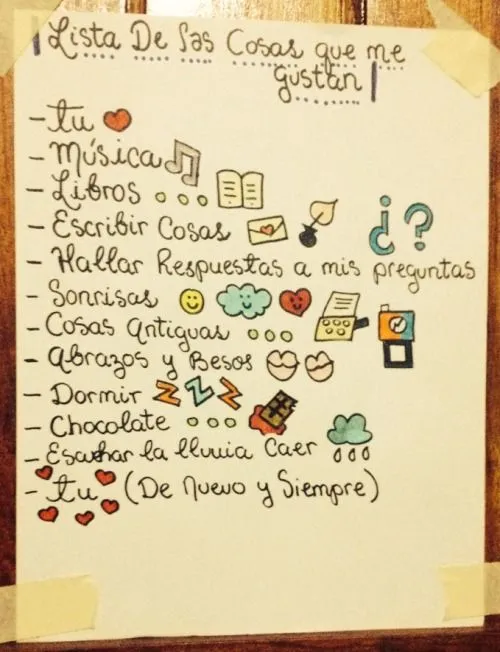 Lista De las Cosas que me
gustan
- tu
- Música
- Libros ...
- Escribir Cosas
¿?
- Hallar Respuestas a mis preguntas
- Sonrisas
- Cosas Antiguas ...
- Abrazos y Besos
- Dormir z z z
- Chocolate ...
- Escuchar la lluvia Caer
- tu (De Nuevo y Siempre)